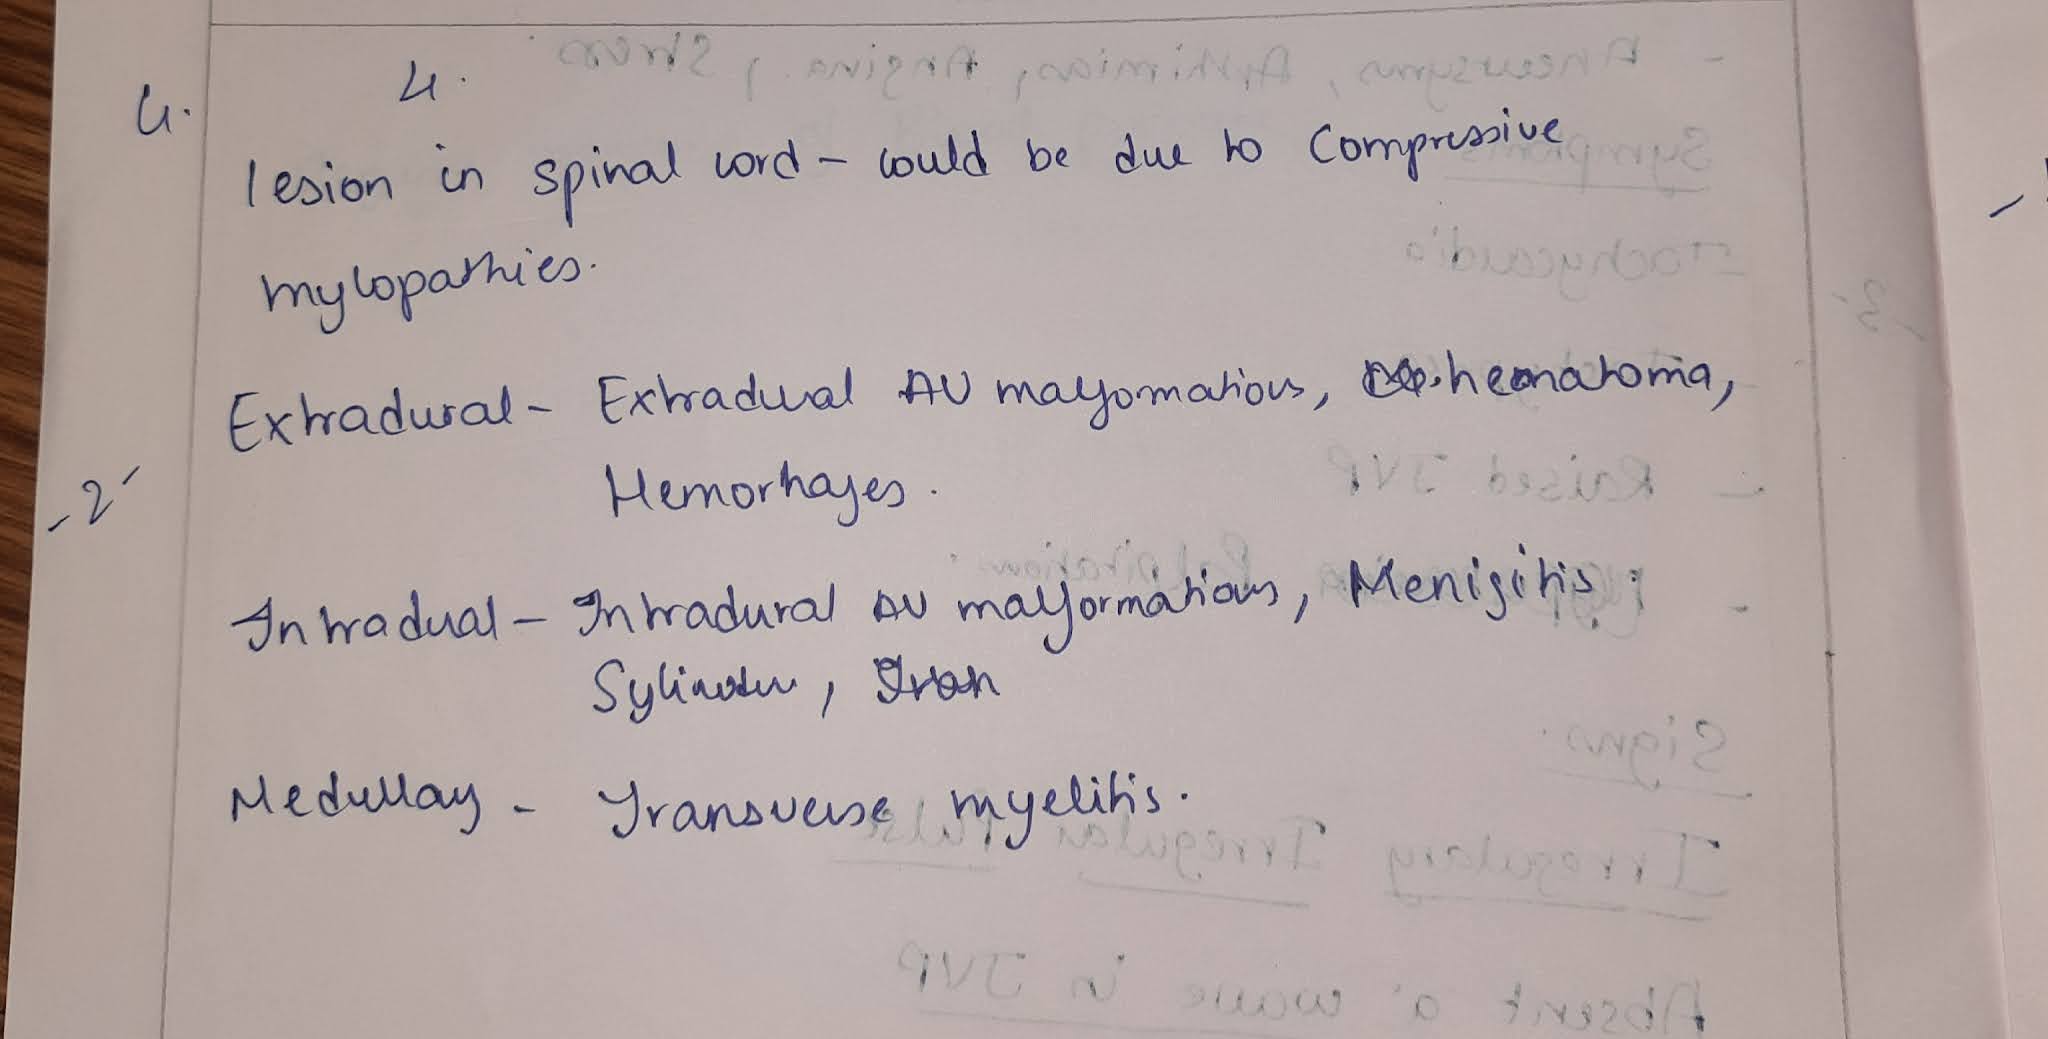 4.
4.
lesion in spinal cord - could be due to Compressive
mylopathies.
Extradural - Extradual AV malformations, hematoma,
-2-
Hemorhages.
Intradual - Intradural AV malformations, Menigitis,
Medullay - Transverse myelitis.